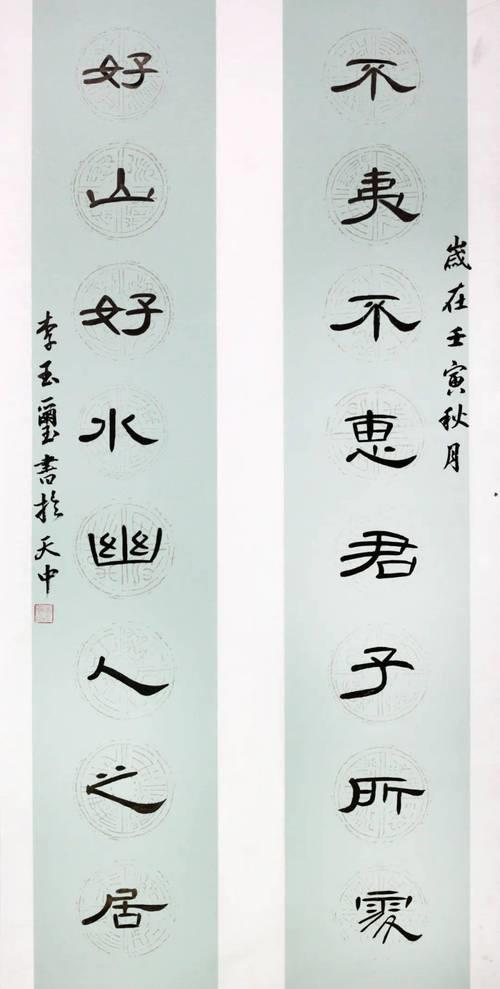 歲在壬寅秋月
不夷不惠君子所處
好山好水幽人之居
李玉璽書於天中